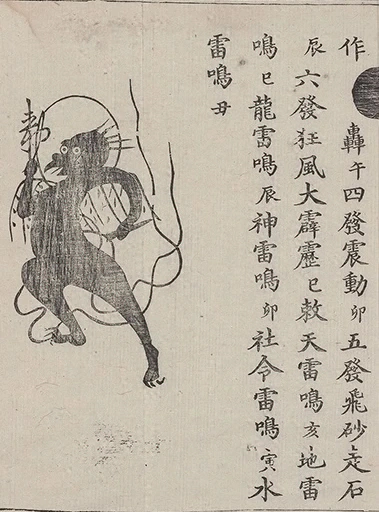 作　轟午四發震動卯五發飛砂走石
辰六發狂風大霹靂巳敕天雷鳴亥地雷
鳴巳龍雷鳴辰神雷鳴卯社令雷鳴寅水
雷鳴丑
勅